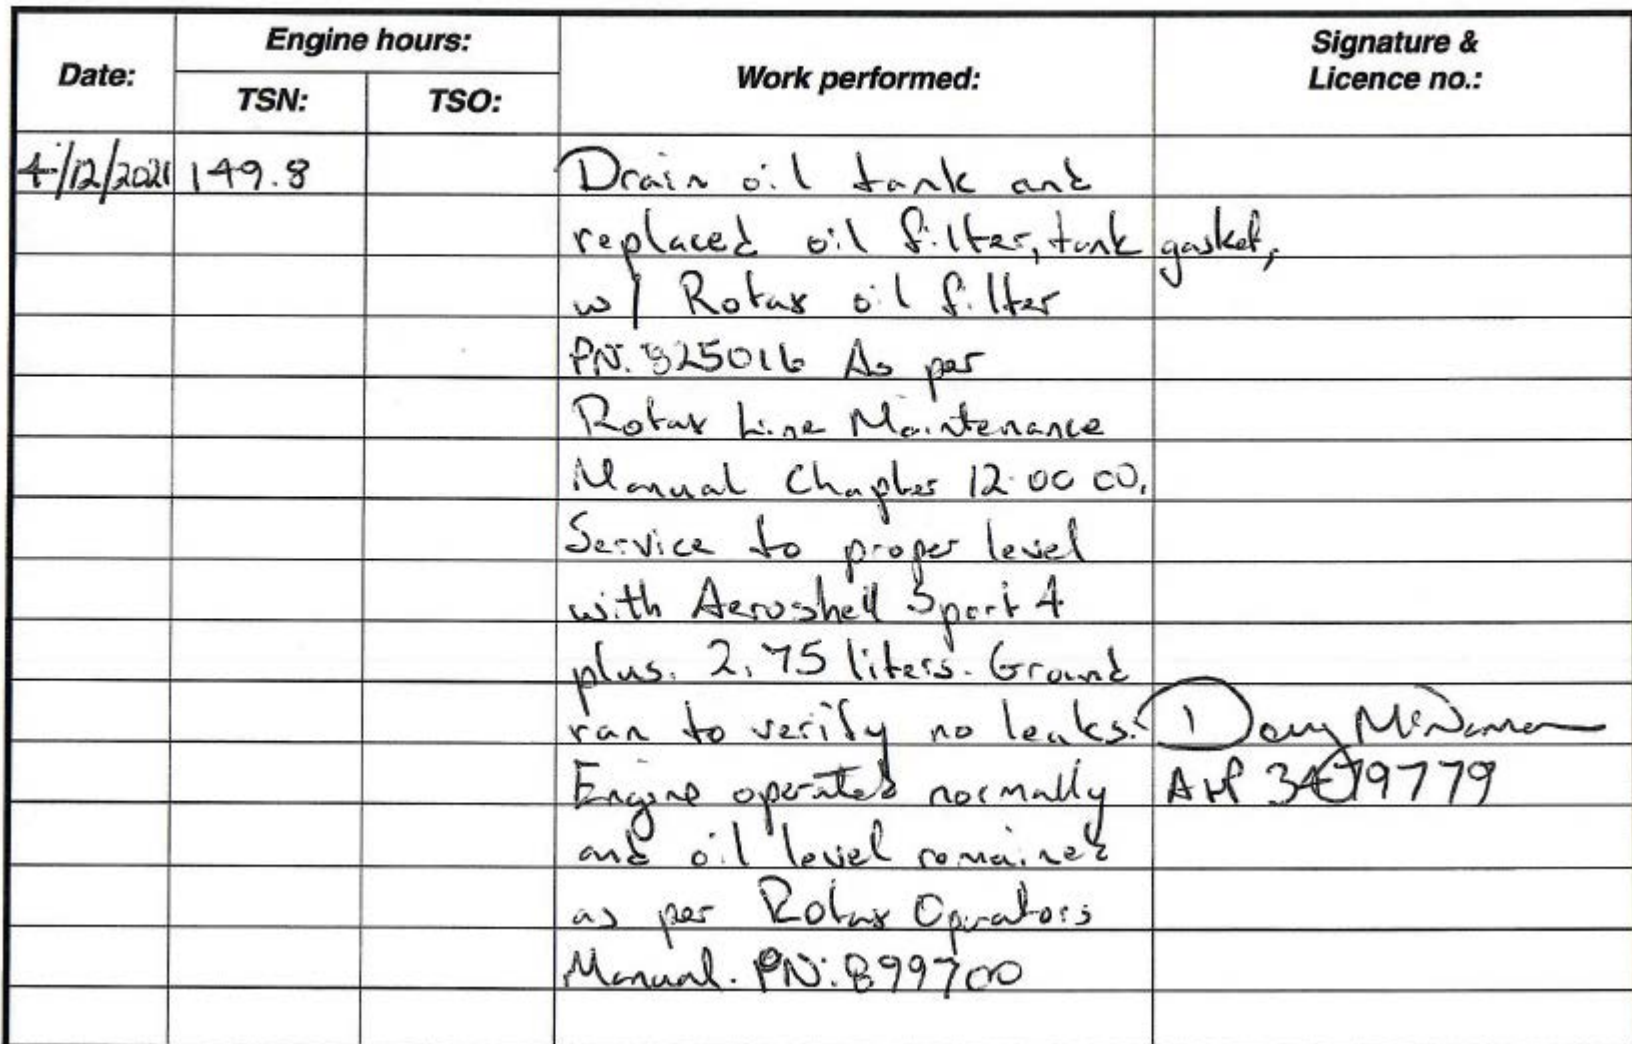 Date:
Engine hours:
TSN:
TSO:
Work performed:
Signature &
Licence no.:
4/12/2021 149.8 Drain oil tank and
replaced oil filter, tank gasket,
w/ Rotax oil filter
PN. 825016 As per
Rotax Line Maintenance
Manual Chapter 12 00 00.
Service to proper level
with Aeroshell Sport 4
plus. 2.75 liters. Ground
ran to verify no leaks. Doug
Engine operated normally
A&P 3479779
and oil level remained
as per Rotax Operators
Manual. PN: 899700